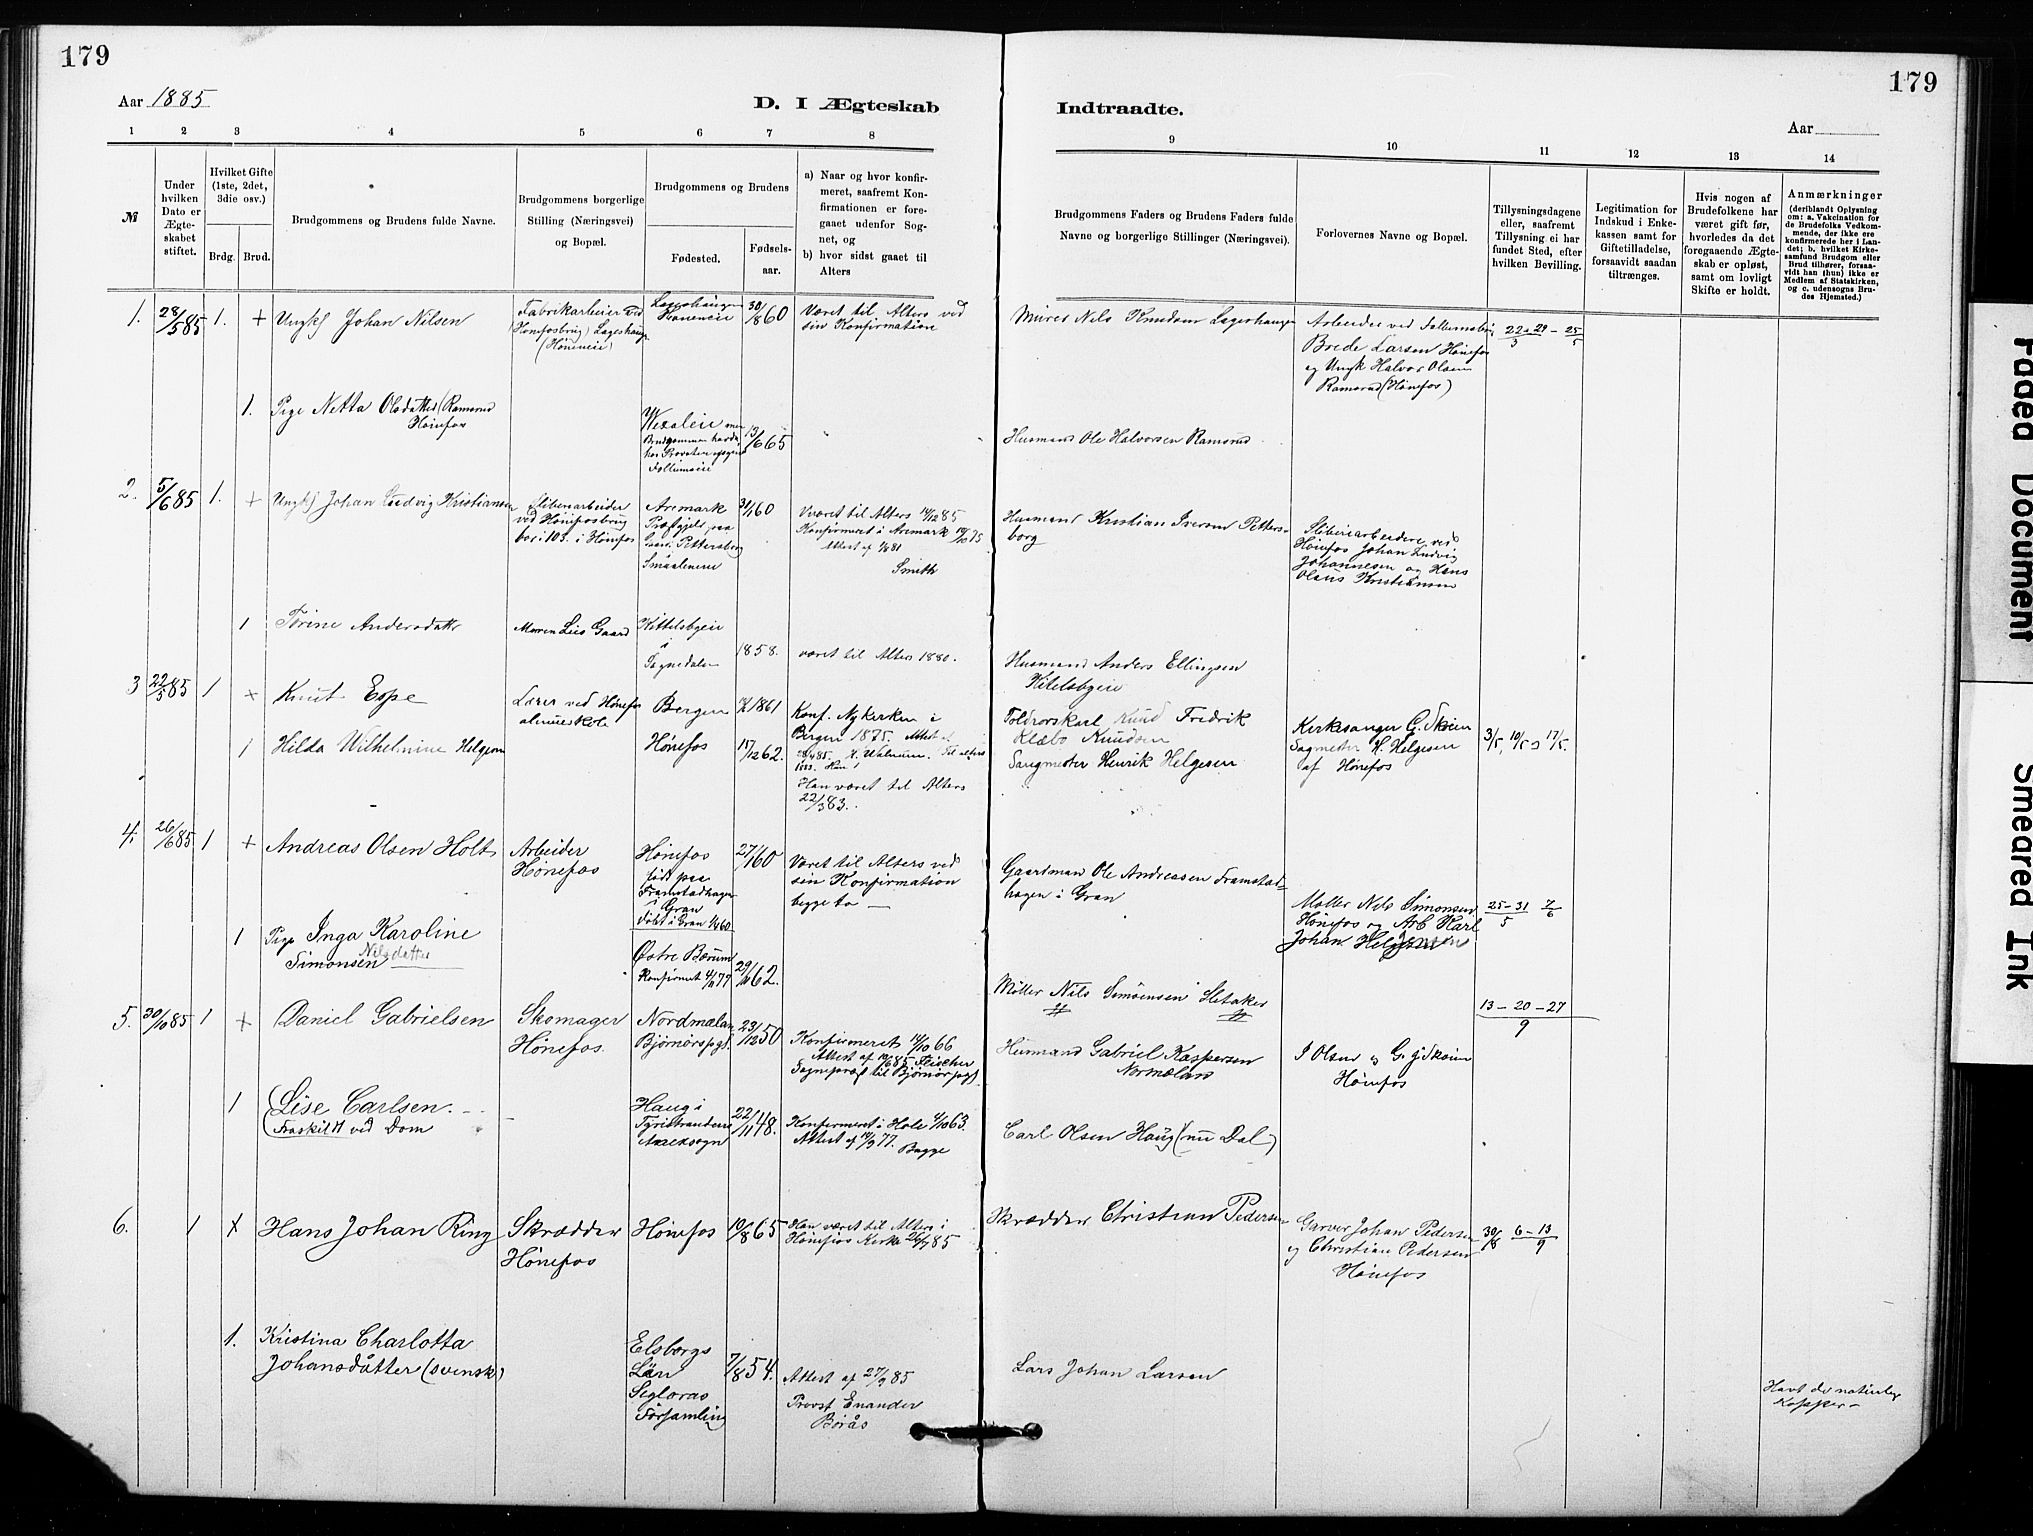 179
179
Aar 1885
D. I Ægteskab
Indtraadte.
Aar
1 2 3 4 5 6 7 8 9 10 11 12 13 14
№
Under
hvilken
Dato er
Ægte-
skabet
stiftet.
Hvilket Gifte
(1ste, 2det,
3die osv.)
Brdg. Brud.
Brudgommens og Brudens fulde Navne.
Brudgommens borgerlige
Stilling (Næringsvei)
og Bopæl.
Brudgommens og Brudens
Fødested.
Fødsels-
aar.
a) Naar og hvor konfir-
meret, saafremt Kon-
firmationen er fore-
gaaet udenfor Sog-
net, og
b) hvor sidst gaaet til
Alters
Brudgommens Faders og Brudens Faders fulde
Navne og borgerlige Stillinger (Næringsvei).
Forlovernes Navne og Bopæl.
Tillysningsdagene
eller, saafremt
Tillysning ei har
fundet Sted, efter
hvilken Bevilling.
Legitimation for
Indskud i Enke-
kassen samt for
Giftetilladelse,
forsaavidt saadan
tiltrænges.
Hvis nogen af
Brudefolkene har
været gift før,
hvorledes da det
foregaaende Ægte-
skab er opløst,
samt om lovligt
Skifte er holdt.
Anmærkninger
(deriblandt Oplysning
om: a. Vakcination for
de Brudefolks Vedkom-
mende, der ikke ere
konfirmerede her i Lan-
det; b. hvilket Kirke-
samfund Brudgom eller
Brud tilhører, forsaa-
vidt han (hun) ikke er
Medlem af Statskirken,
og c. udensogns Bru-
des Hjemsted.)
1. 28/5 85 1. + Ungk) Johan Nilsen
Fabrikarbeier ved
Hønefosbrug) Lagerhaug
(Hønneie)
Lagerhaugen
30/8 60
Været til Alters ved
sin Konfirmation
Murer Nils Knudsen Lagerhaugen
Arbeider ved
Brede Larsen Hønefos
og Ungk Halvor Olsen
Ramsrud (Hønefos)
22 - 29 - 25
3 5
1. Pige Netta Olsdatter (Ramsrud
Hønefos
13/6 65
Follumeie
Husmand Ole Halvorsen Ramsrud
2. 5/6 85 1. + Ungk) Johan Ludvig Kristiansen
Sliberiarbeider
ved Hønefosbrug
bor i 103. i Hønefos
Aremark
Præstgjeld paa
Pettersborg
Smaalenene
31/1 60
Været til Alters 14/12 85
Konfirmeret i Aremark 10/10 75
Attest af 81
Smith
Husmand Kristian Iversen Petters-
borg
Sliberiarbeidere ved
Hønefos Johan Ludvig
Johannesen og Hans
Olaus Kristiansen
1 Torine Andersdattr
Gaard
Kittelsbyeie
i
Sognedalen
1858.
været til Alters 1880.
Husmand Anders Ellingsen
Kitelsbyeie
3 22/5 85 1 + Knut Espe
Lærer ved Hønefos
almueskole
Bergen
1861
Konf. Nykirken i
Bergen 1875. Attest af
Toldrorskarl Knud Fredrik
Klæbo Knudsen
Kirkesanger G. Skøien
Sagmester H. Helgesen
af Hønefos
3/5, 10/5 og 17/5.
1 Hilda Wilhelmine Helgesen
Hønefos
15/12 62.
Han været til Alters
22/3 83.
Sagmester Henrik Helgesen
4. 26/6 85 1 + Andreas Olsen Holt
Arbeider
Hønefos
Hønefos
født paa
Framstadhagen
i Gran
Døbt i Gran 1/4 60
27/1 60
Været til Alters ved
sin Konfirmation
begge to —
Gaardman Ole Andreasen Framstad-
hagen i Gran
Møller Nils Simonsen
Hønefos og Arb Karl
Johan Helgesen
25 - 31 7
5 6
1 Pige Inga Karoline
Nilsdatter
Simonsen
Østre Bærum
Konfirmert 4/11 77
29/10 62.
Møller Nils Simonsen Sletaker
5. 30/10 85 1 + Daniel Gabrielsen
Skomager
Hønefos.
Nordmælan
Bjørnørspgt.
23/12 50
Konfirmeret 14/10 66
Attest af 10/6 85 Fleischer
Sognepræst til Bjørnør pgt.
Husmand Gabriel Kaspersen
Normælan
I Olsen og G. Skøien
Hønefos
13 - 20 - 27
9
1 (Lise Carlsen.
Fraskildt ved Dom
Haug i
Tyristrandens
Annexsogn
22/11 48.
Konfirmeret i Hole 4/10 63.
Attest af 17/9 77. Bugge
Carl Olsen Haug (nu Dal)
6. 1 + Hans Johan Ring
Skrædder
Hønefos
Hønefos
19/8 65
Han været til Alters i
Hønefos Kirke 26/7 85
Skrædder Christian Pedersen
Garver Johan Pedersen
og Christian Pedersen
Hønefos
30/8 6 - 13
9
1. Kristina Charlotta
Johansdåtter (svensk)
Elsborgs
Län
Segloras
Församling
7/8 54.
Attest af 27/9 85
Provst Enander
Borås
Lars Johan Larsen
Havt de naturlige
Kopper -
Faded Document
Smeared Ink